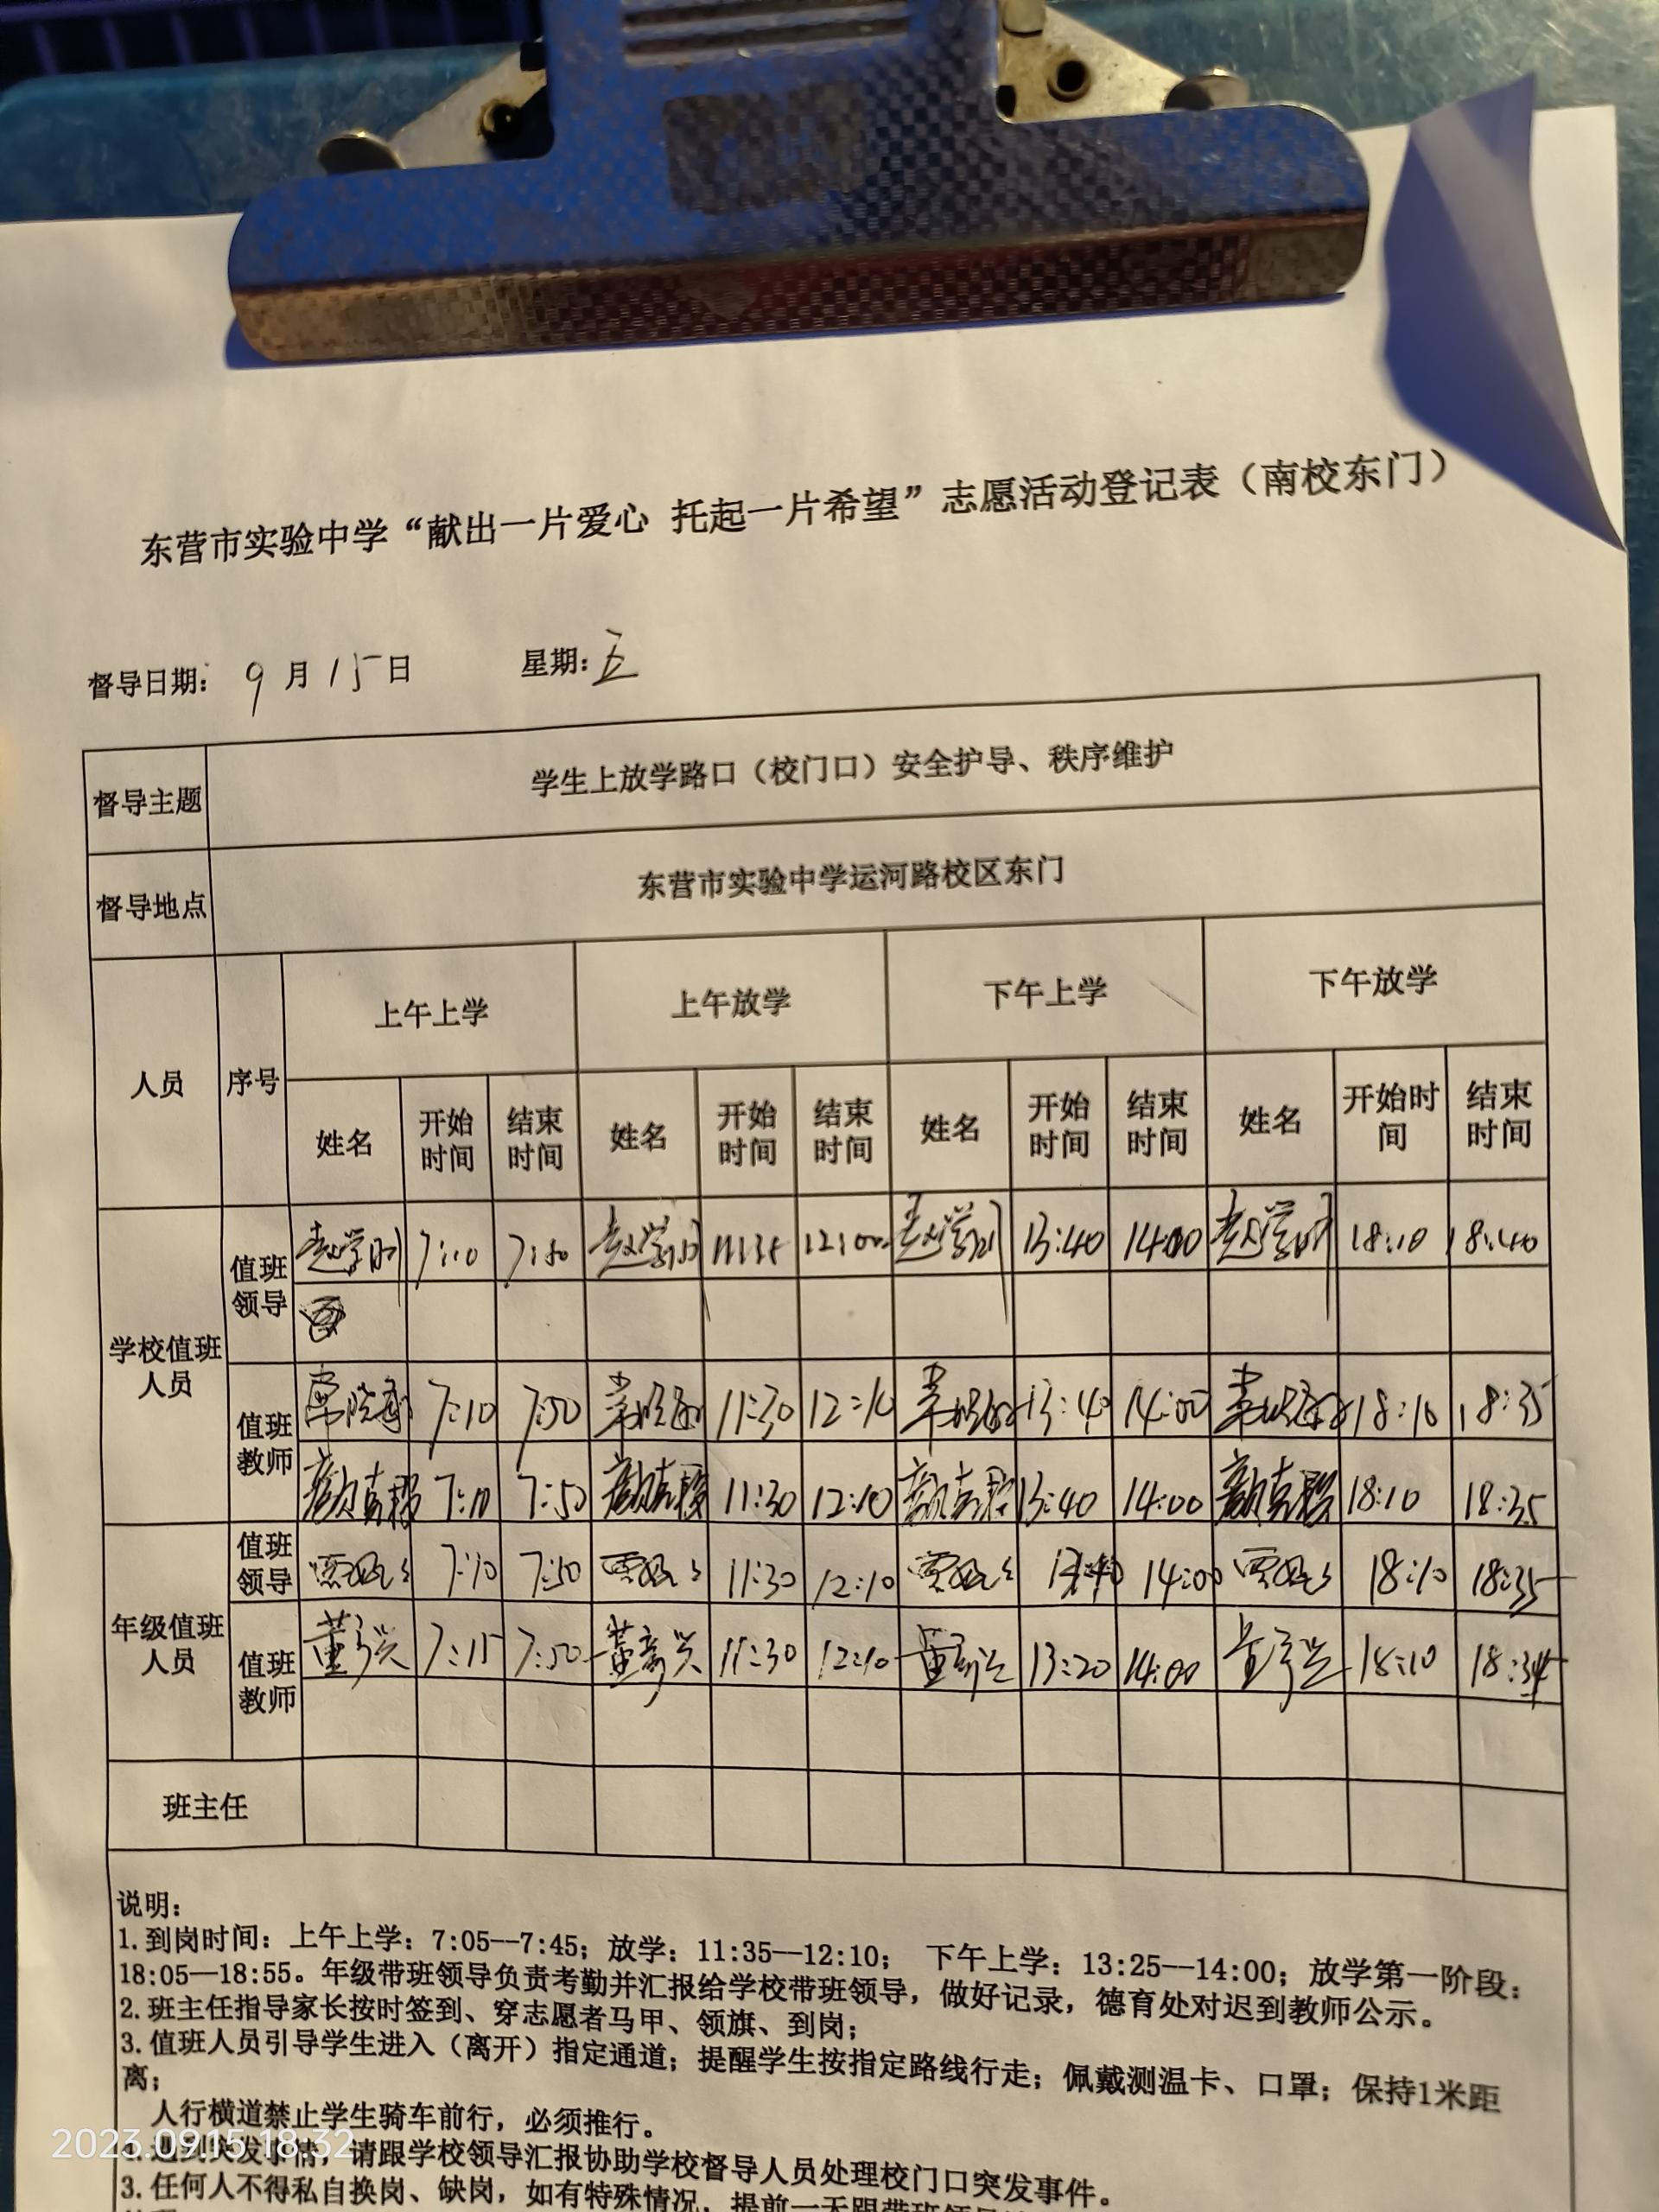 东营市实验中学“献出一片爱心 托起一片希望”志愿活动登记表（南校东门）
督导日期: 9 月 15 日 星期: 五
督导主题 学生上放学路口（校门口）安全护导、秩序维护
督导地点 东营市实验中学运河路校区东门
人员 序号 上午上学 上午放学 下午上学 下午放学
姓名 开始时间 结束时间 姓名 开始时间 结束时间 姓名 开始时间 结束时间 姓名 开始时间 结束时间
学校值班人员
值班领导 7:10 7:50 12:00 13:40 14:00 18:10 18:40
值班教师 7:10 7:50 11:30 12:10 13:40 14:00 18:10 18:35
7:10 7:50 11:30 12:10 13:40 14:00 18:10 18:35
年级值班人员
值班领导 7:10 7:50 11:30 12:10 13:40 14:00 18:10 18:35
值班教师 7:15 7:50 11:30 12:10 13:20 14:00 18:10 18:34
班主任
说明:
1.到岗时间: 上午上学: 7:05--7:45; 放学: 11:35--12:10; 下午上学: 13:25--14:00; 放学第一阶段:
18:05--18:55。年级带班领导负责考勤并汇报给学校带班领导，做好记录，德育处对迟到教师公示。
2.班主任指导家长按时签到、穿志愿者马甲、领旗、到岗;
3.值班人员引导学生进入（离开）指定通道; 提醒学生按指定路线行走; 佩戴测温卡、口罩; 保持1米距
离;
人行横道禁止学生骑车前行，必须推行。
4.遇到突发事情，请跟学校领导汇报协助学校督导人员处理校门口突发事件。
3.任何人不得私自换岗、缺岗，如有特殊情况，提前一天跟带班领导
2023.09.15 18:32